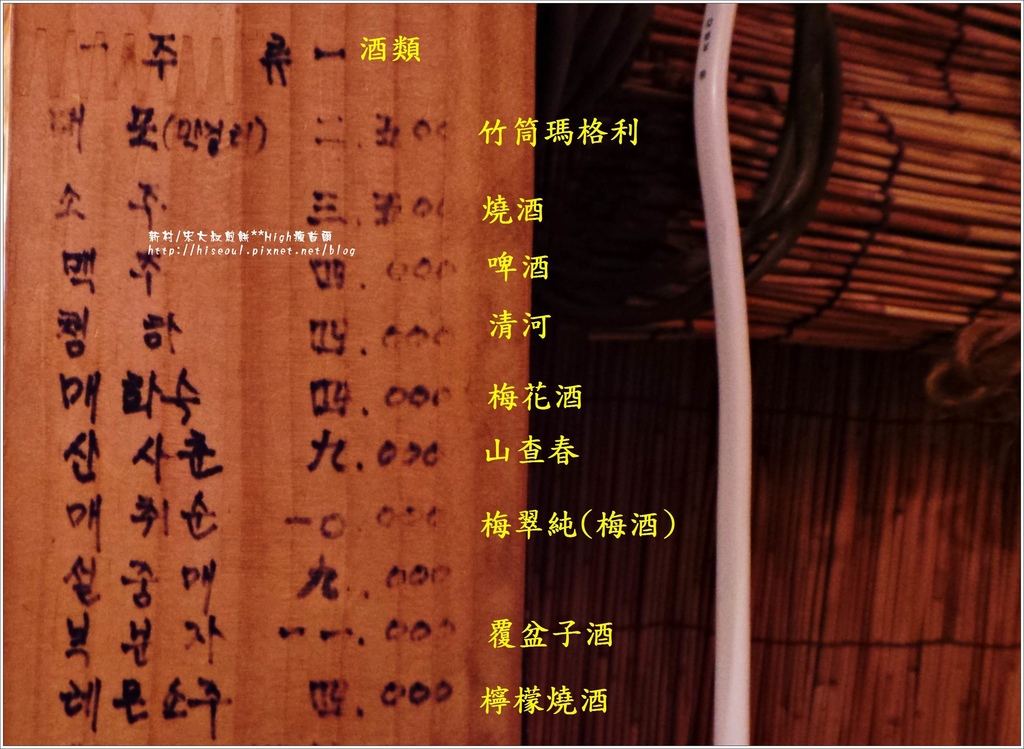 一 주 류 一 酒類
대 포(막걸리) 二.五00 竹筒瑪格利
소 주 三.五00 燒酒
新村/宋大叔煎餅**High瘋首爾
http://hiseoul.pixnet.net/blog
맥 주 四.000 啤酒
청 하 四.000 清河
매 화 수 四.000 梅花酒
산 사 춘 九.000 山查春
매 취 순 一0 000 梅翠純(梅酒)
설 중 매 九.000
복 분 자 一一.000 覆盆子酒
레 몬 소 주 四.000 檸檬燒酒